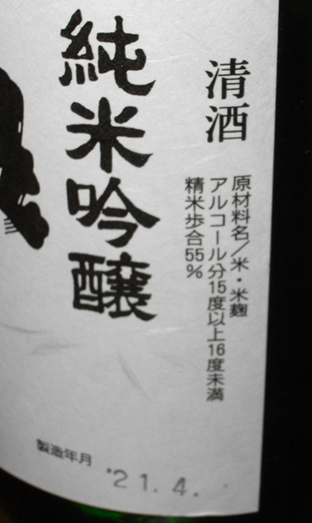 清酒
原材料名/米・米麹
アルコール分15度以上16度未満
精米歩合55%
純米吟醸
製造年月
'21.4.